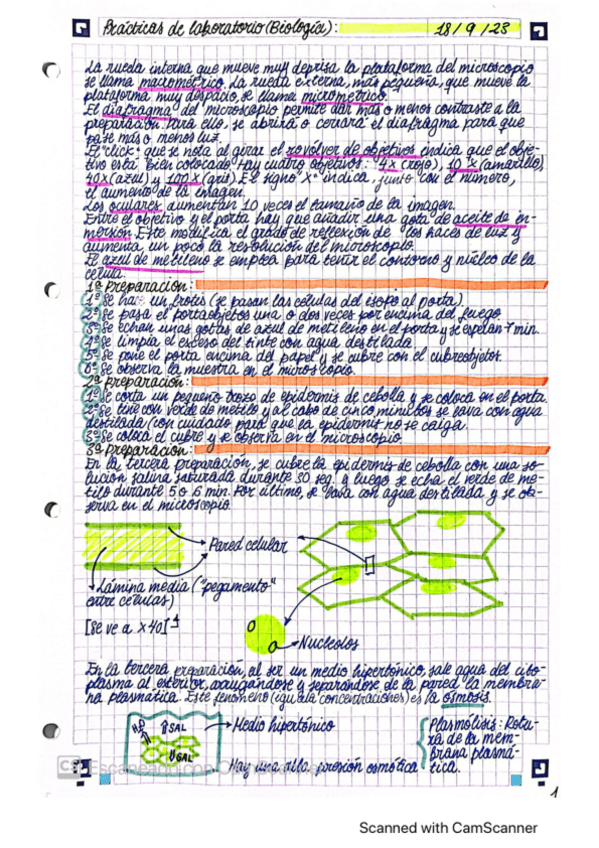 Prácticas de laboratorio (Biología): 18/9/23
La rueda interna que mueve muy deprisa la plataforma del microscopio
se llama macrométrico. La rueda externa, más pequeña, que mueve la
plataforma muy despacio, se llama micrométrico.
El diafragma del microscopio permite dar más o menos contraste a la
preparación. Para ello, se abrirá o cerrará el diafragma para que
pase más o menos luz.
El "click" que se nota al girar el revolver de objetivos indica que el obje-
tivo está bien colocado. Hay cuatro objetivos: 4X (rojo), 10X (amarillo),
40X (azul) y 100X (gris). El signo "X" indica, junto con el número,
el aumento de la imagen.
Los oculares aumentan 10 veces el tamaño de la imagen.
Entre el objetivo y el porta hay que añadir una gota de aceite de in-
mersión. Este modifica el grado de reflexión de los haces de luz y
aumenta un poco la resolución del microscopio.
El azul de metileno se emplea para teñir el contorno y núcleo de la
célula.
1ª Preparación:
1º Se hace un frotis (se pasan las células del esofo al porta).
2º Se pasa el portaobjetos una o dos veces por encima del fuego.
3º Se echan unas gotas de azul de metileno en el porta y se esperan 7 min.
4º Se limpia el exceso del tinte con agua destilada.
5º Se pone el porta encima del papel y se cubre con el cubreobjetos.
6º Se observa la muestra en el microscopio.
2ª Preparación:
1º Se corta un pequeño trozo de epidermis de cebolla y se coloca en el porta.
2º Se tiñe con verde de metilo y al cabo de cinco minutos se lava con agua
destilada (con cuidado para que la epidermis no se caiga.
3º Se coloca el cubre y se observa en el microscopio
3ª Preparación:
En la tercera preparación, se cubre la epidermis de cebolla con una so-
lución salina saturada durante 30 seg. y luego se echa el verde de me-
tilo durante 5 o 6 min. Por último, se lava con agua destilada y se ob-
serva en el microscopio.
Pared celular
Lámina media ("pegamento"
entre células)
[Se ve a x40]
Nucleolos
En la tercera preparación, al ser un medio hipertónico, sale agua del cito-
plasma al exterior, arrugándose y separándose de la pared la membra-
na plasmática. Este fenómeno (iguala concentraciones) es la ósmosis.
H₂O
↑SAL
↓SAL
Medio hipertónico
Hay una alta presión osmótica
Plasmolisis: Rotu-
ra de la mem-
brana plasmá-
tica.
CS Escaneado con CamScanner
1
Scanned with CamScanner